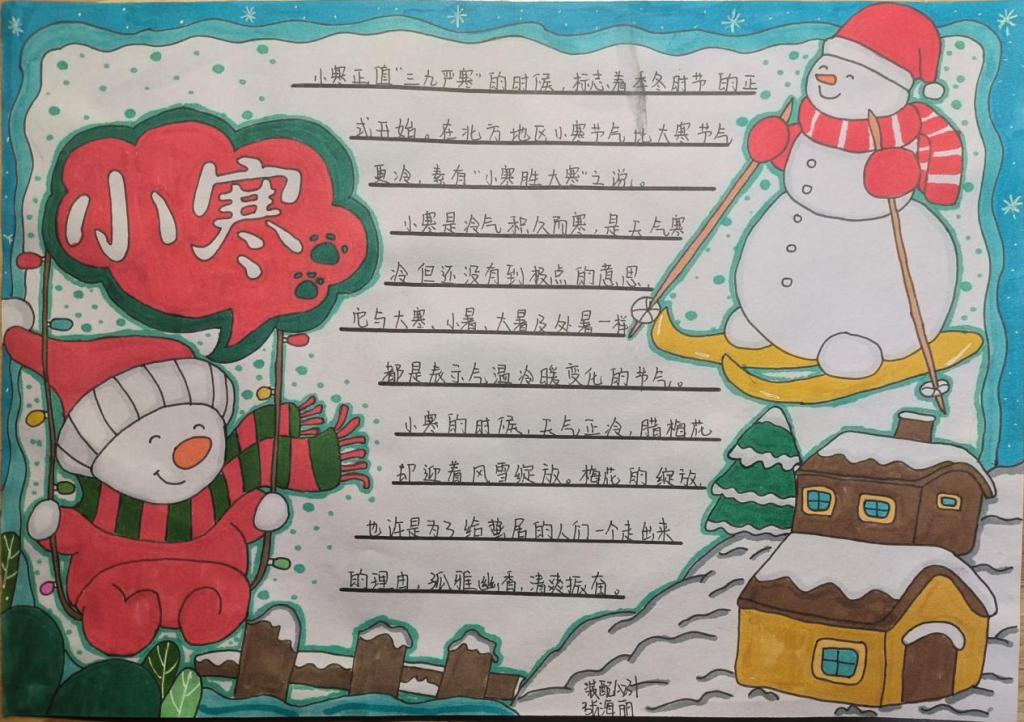 小寒
小寒正值"三九严寒"的时候，标志着季冬时节的正
式开始。在北方地区小寒节气比大寒节气
更冷，素有"小寒胜大寒"之说。
小寒是冷气积久而寒，是天气寒
冷但还没有到极点的意思，
它与大寒、小暑、大暑及处暑一样
都是表示气温冷暖变化的节气。
小寒的时候，天气正冷，腊梅花
却迎着风雪绽放。梅花的绽放，
也许是为了给蛰居的人们一个走出来
的理由，孤雅幽香，清爽振奋。
装配
海丽